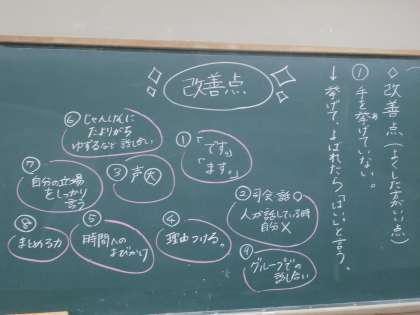 ◇改善点(よくした方がいい点)
①手を挙げていない。
↓挙げて、よばれたら「はい」と言う。
改善点
①「です。」
「ます。」
②司会 話〇
人が話している時
自分×
③声大
④理由つける。
⑤時間への
よびかけ
⑥じゃんけんに
たよりがち
ゆずるなど 話し合い
⑦自分の立場
をしっかり
言う
⑧まとめる力
⑨グループでの
話し合い